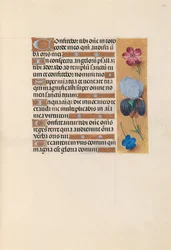 Confitebor tibi dñe in toto
corde meo qm̃ audisti v̄
ba oris mei
In conspectu angelorum psallã
tibi adorabo ad templum sanctum tu
um et confitebor nomini tuo
Super
qm̃ magnificasti super omne no
men sanctum tuum
In quacunque die invocavero
te exaudi me multiplicabis in ani
ma mea virtutem
Confiteantur tibi dñe omẽs
reges terre quia audierunt omia
verba oris tui
Et cantent in viis domini qm̃
magna est gloria domini